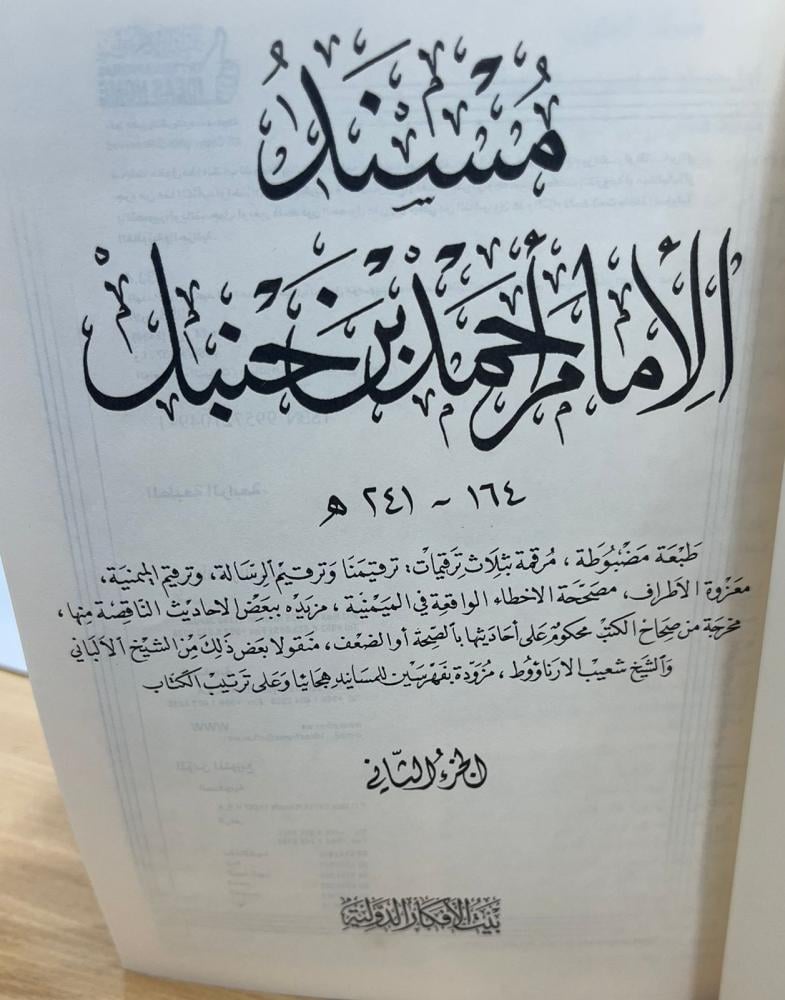 مُسْنَدُ
الإِمَامِ أَحْمَدَ بْنِ حَنْبَلٍ
١٦٤ ~ ٢٤١ هـ
طَبْعَة مَضْبُوطَة ، مُرقمة بثلاث ترقيمات: ترقيمنا وترقيم الرسالة، وترقيم الميمنية،
معزوة الأطراف، مصححة الاخطاء الواقعة في الميمنية ، مزيده ببعض الاحاديث الناقصة منها ،
مخرجة من صحاح الكتب محكوم على أحاديثها بالصحة أو الضعف ، منقولا بعض ذلك من الشيخ الألباني
والشيخ شعيب الارناؤوط ، مزودة بفهرسين للمسانيد هجائيا وعلى ترتيب الكتاب
الجزء الثاني
بيت الأفكار الدولية